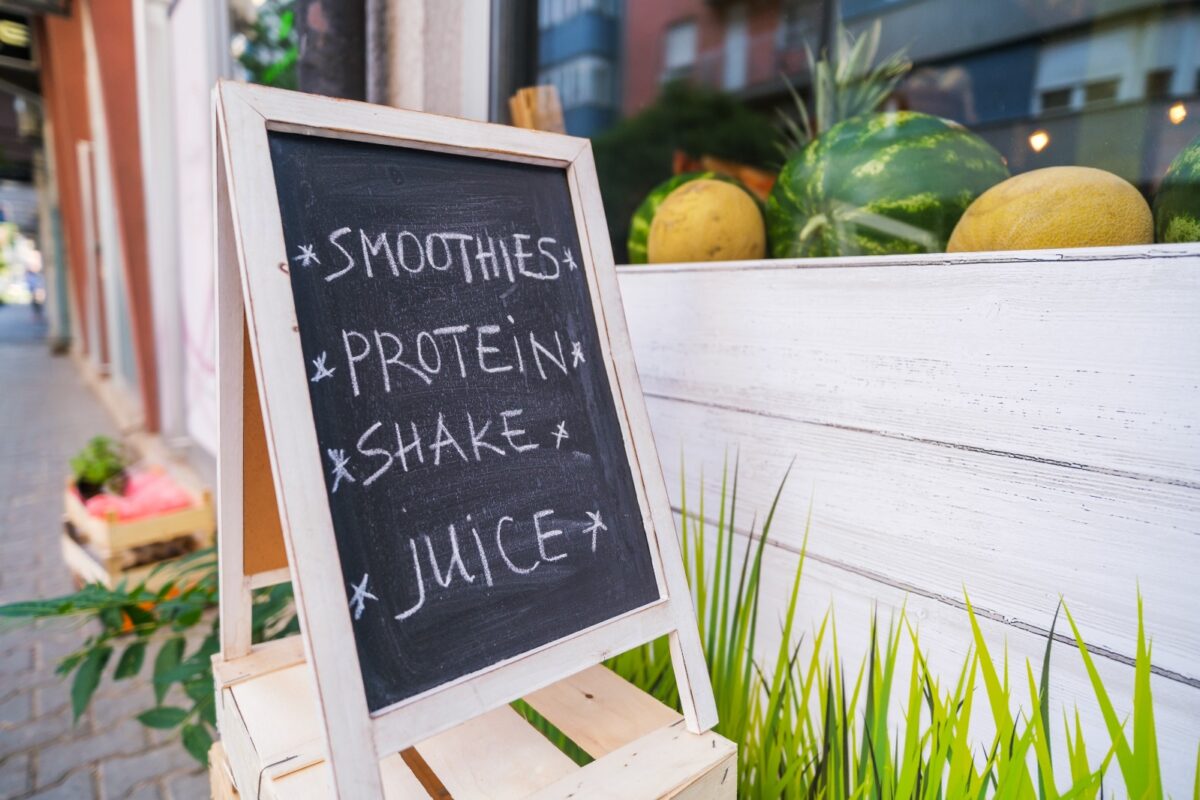 * SMOOTHIES *
* PROTEiN *
* SHAKE *
* JUiCE *